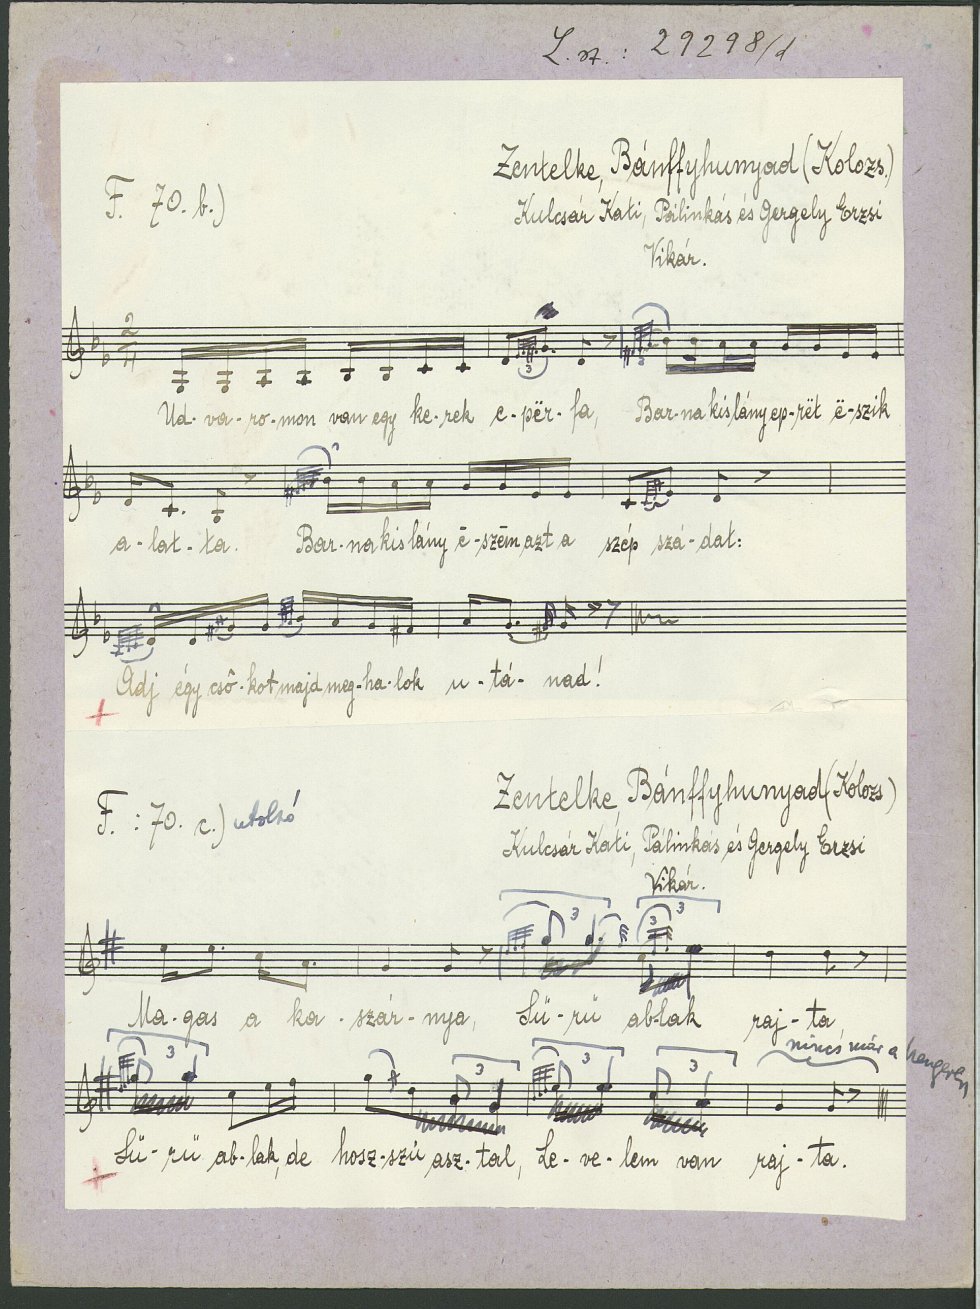 L. sz. : 29298/d
F. 70. b.)
Zentelke, Bánffyhunyad (Kolozs.)
Kulcsár Kati, Pálinkás és Gergely Erzsi
Vikár.
2
4
3
3
Ud-va-ro-mon van egy ke-rek e-për-fa, Bar-na kislány ep-rët ë-szik
a-lat-ta. Bar-na kis lány ē-szēm azt a szép szá-dat:
Adj égy csô-kot majd meg-ha-lok u-tá-nad!
+
F. : 70. c.) utolsó
Zentelke, Bánffyhunyad (Kolozs)
Kulcsár Kati, Pálinkás és Gergely Erzsi
Vikár.
3 3 3
Ma-gas a ka-szár-nya, Sü-rü ab-lak raj-ta,
nincs már a hengeren
3 3 3 3
Sü-rü ab-lak, de hosz-szú asz-tal, Le-ve-lem van raj-ta.
+